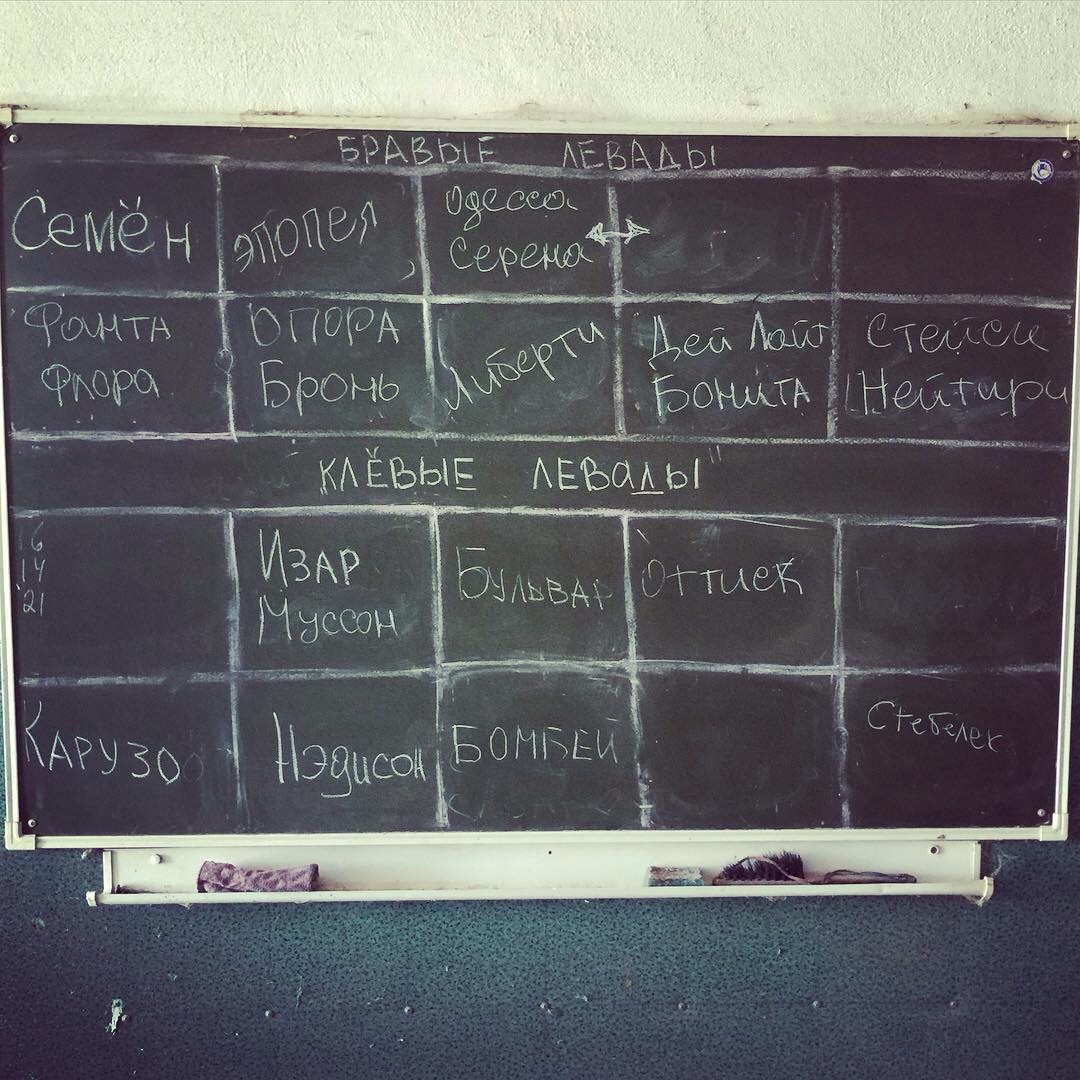 БРАВЫЕ ЛЕВАДЫ
Семён
ЭПОПЕЯ
Одесса
Серена
Фанта
Флора
ОПОРА
Бронь
Либерти
Дей Лайт
БОНИТА
Стейси
Нейтири
"КЛЁВЫЕ ЛЕВАДЫ"
6
14
21
ИЗАР
Муссон
Бульвар
Оттиск
КАРУЗО
Нэдисон
БОМБЕЙ
Стебелек